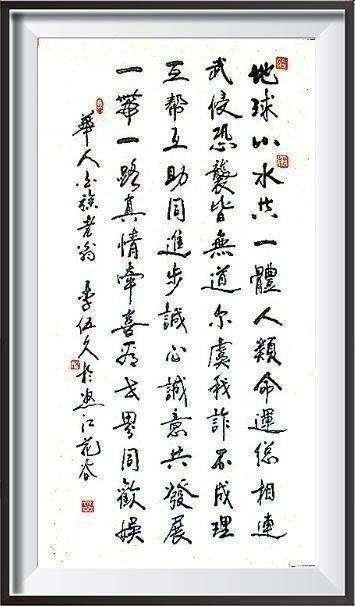 地球山水共一體人類命運總相連
武侵恐襲皆無道尔虞我詐不成理
互帮互助同進步誠心誠意共發展
一帶一路真情牽喜看世界同歡娛
華人 老翁 李伍久於 江花